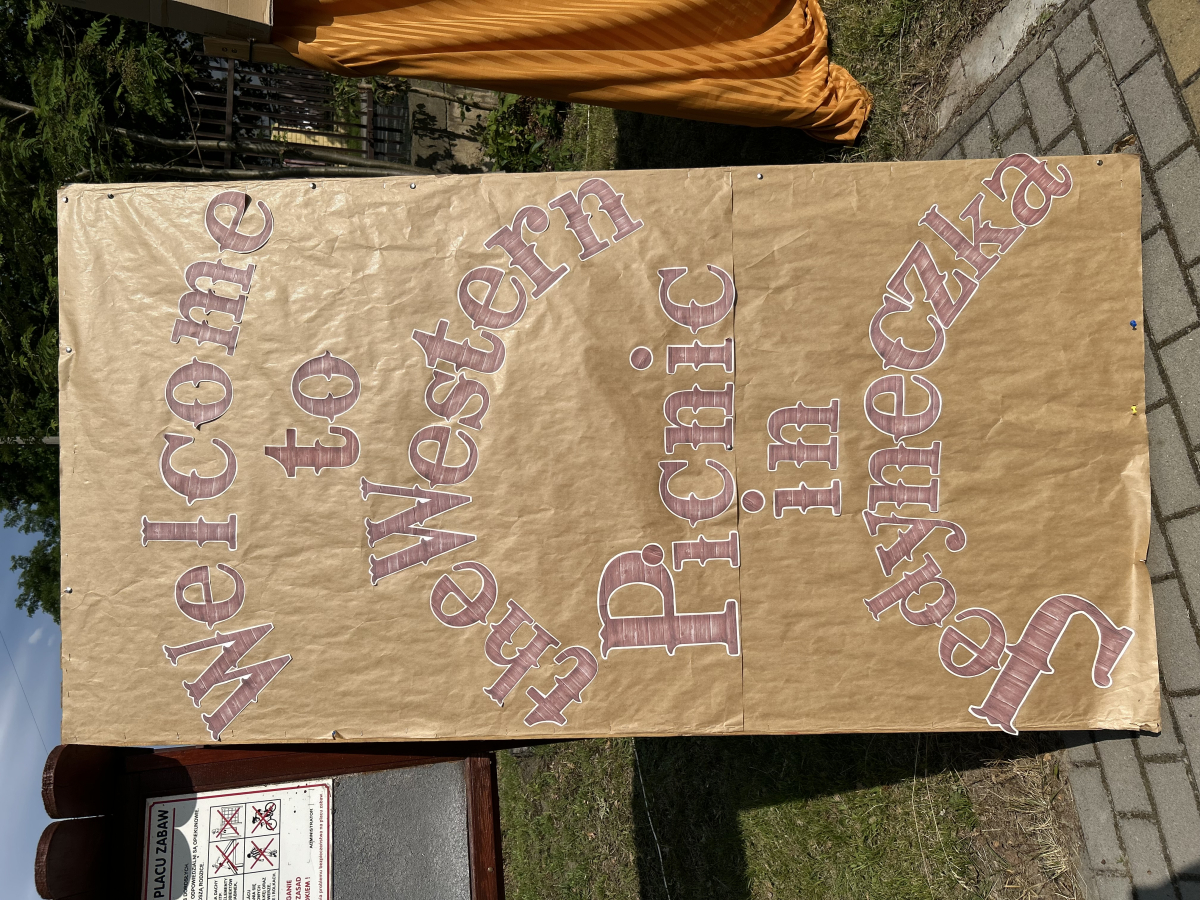 Welcome
to
the Western
Picnic
in
Jepyneczka
PLACU ZABAW
ADMINISTRATOR